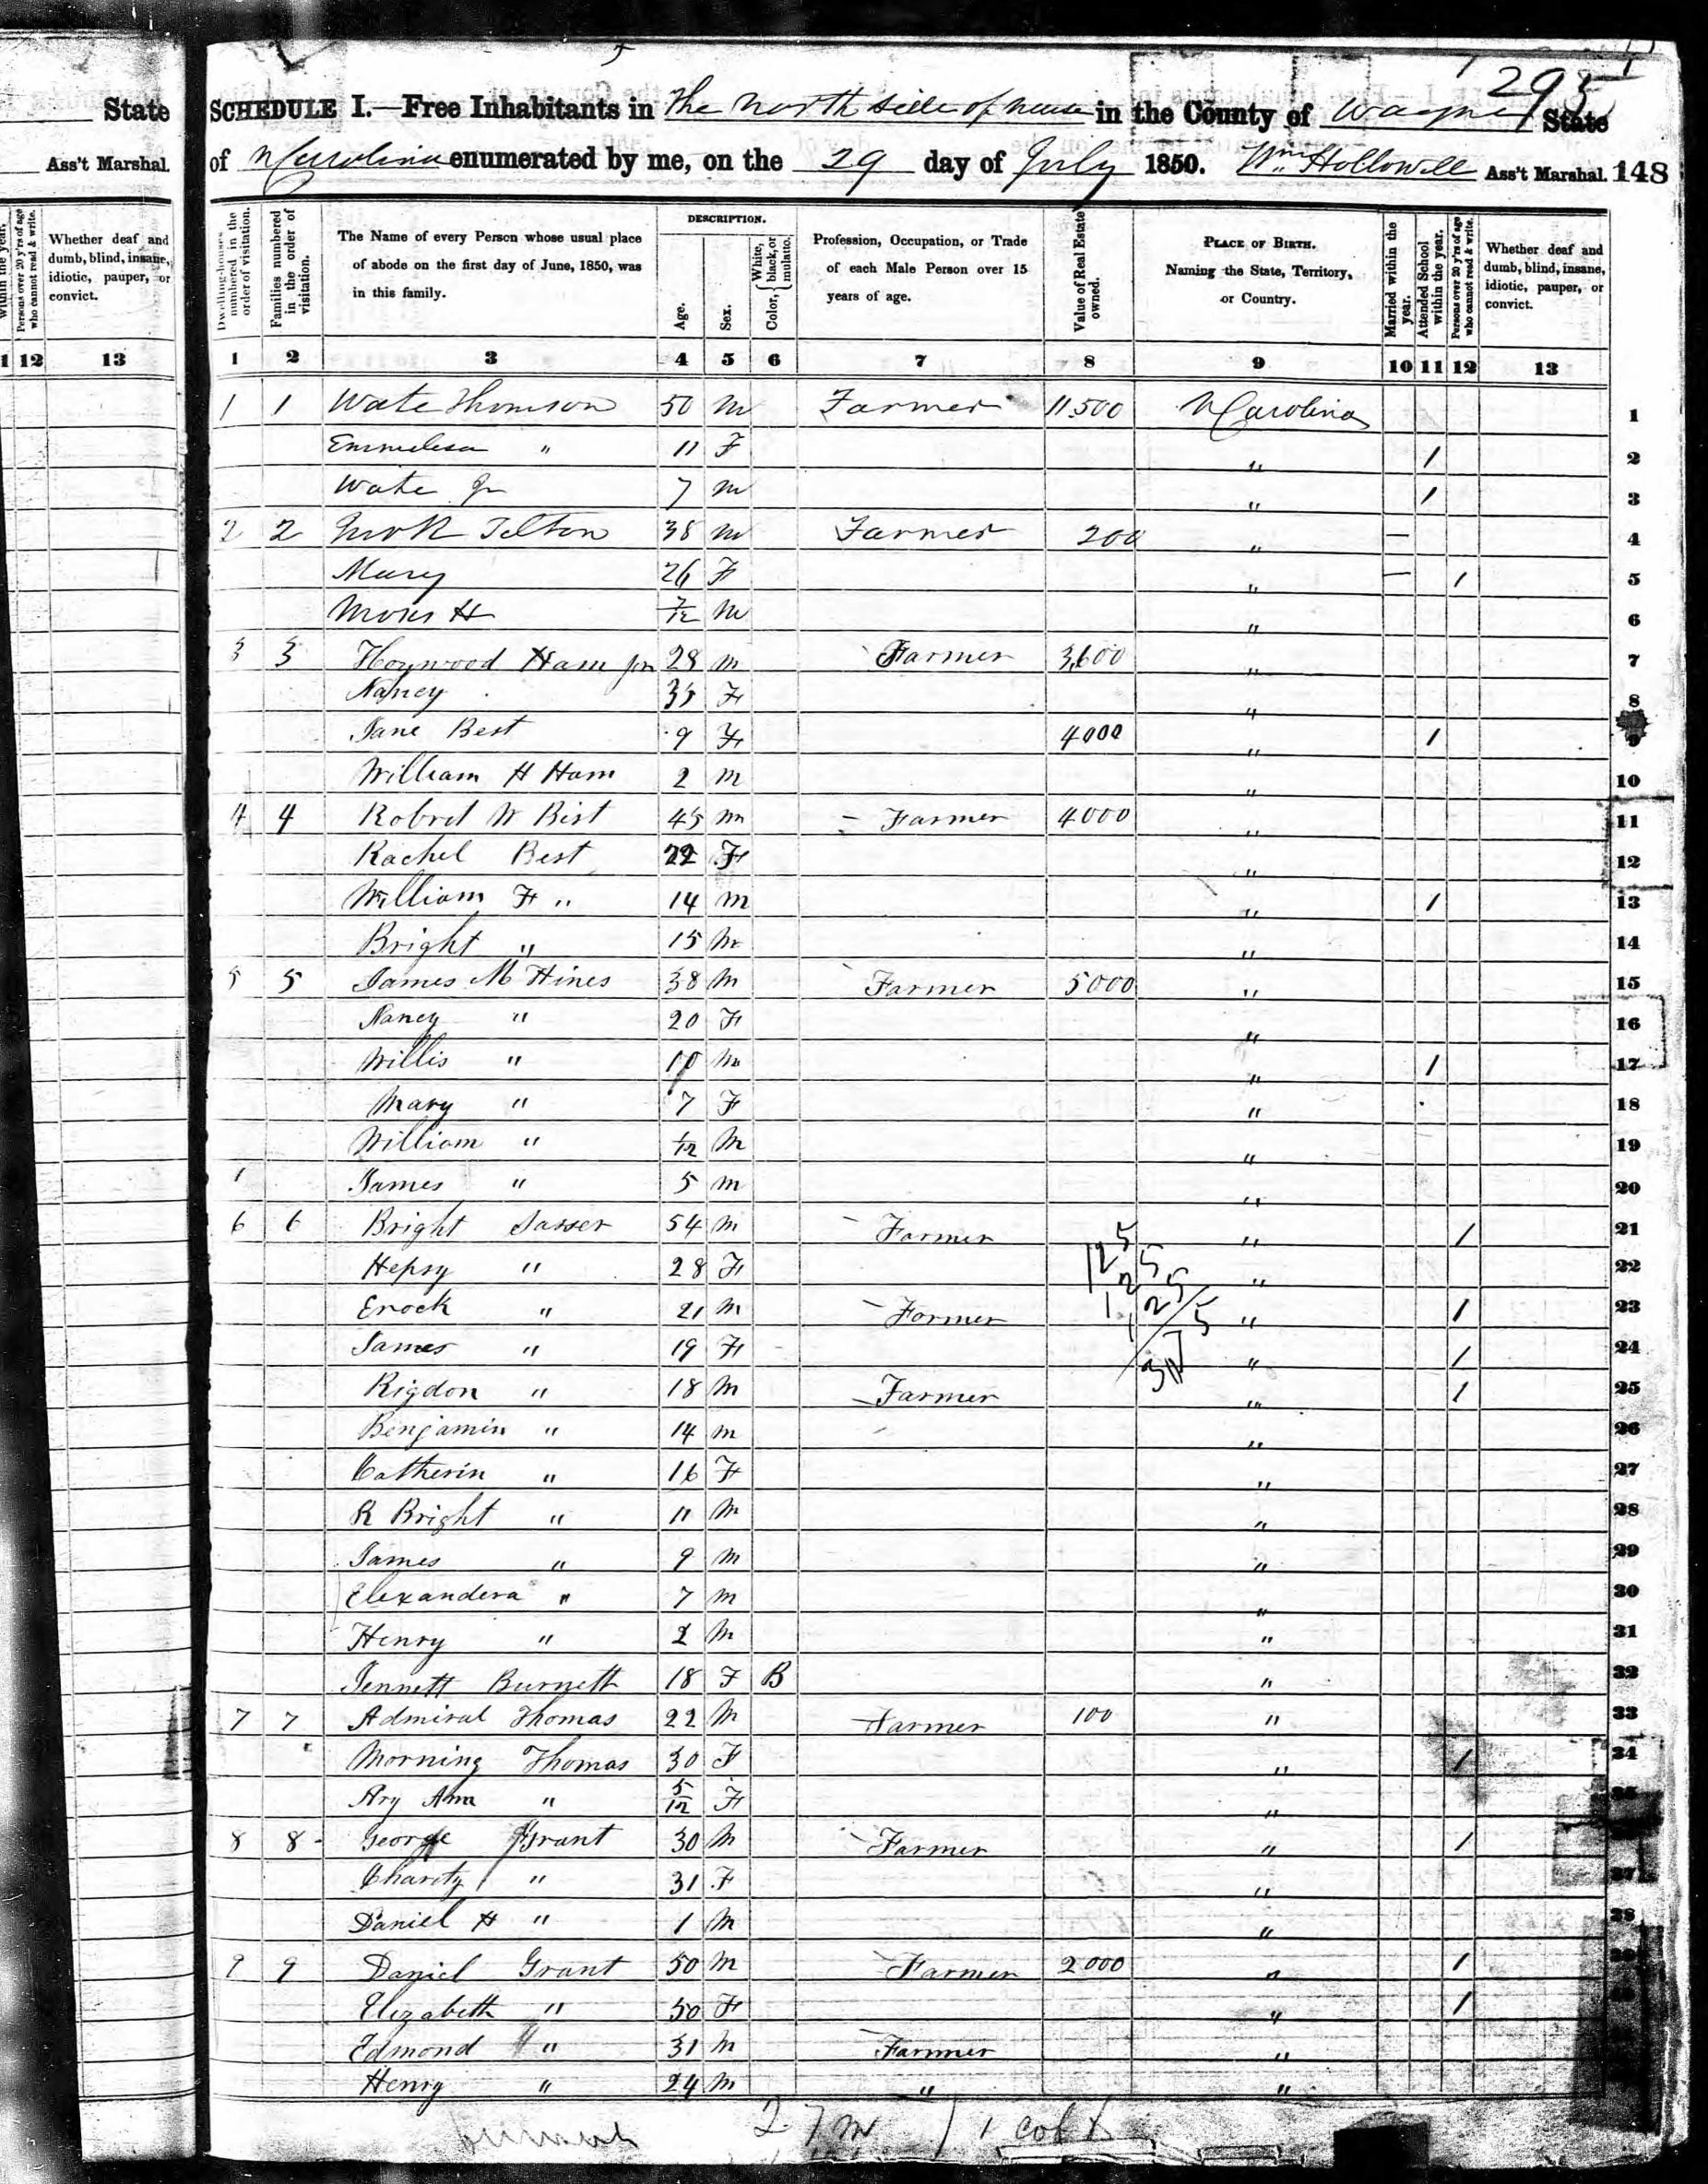 295
State SCHEDULE I.—Free Inhabitants in The North Side of Neuse in the County of Wayne State
Ass't Marshal. of N Carolina enumerated by me, on the 29 day of July 1850. Wm Hollowell Ass't Marshal. 148
within the year.
Persons over 20 y'rs of age who cannot read & write.
Whether deaf and dumb, blind, insane, idiotic, pauper, or convict.
1 12 13
Dwelling-houses numbered in the order of visitation.
Families numbered in the order of visitation.
The Name of every Person whose usual place of abode on the first day of June, 1850, was in this family.
DESCRIPTION.
Age.
Sex.
Color, { White, black, or mulatto.
Profession, Occupation, or Trade of each Male Person over 15 years of age.
Value of Real Estate owned.
PLACE OF BIRTH. Naming the State, Territory, or Country.
Married within the year.
Attended School within the year.
Persons over 20 y'rs of age who cannot read & write.
Whether deaf and dumb, blind, insane, idiotic, pauper, or convict.
1 2 3 4 5 6 7 8 9 10 11 12 13
1 1 Wate Thomson 50 M Farmer 11.500 N Carolina 1
" 11 F " 1 2
Wate Jr 7 M " 1 3
2 2 Telton 38 M Farmer 200 " — 4
Mary 26 F " — 1 5
Moses H 7/12 M " 6
3 3 Haywood Ham jr 28 M Farmer 3,600 " 7
Nancy 35 F " 8
Jane Best 9 F 4000 " 1 9
William H Ham 2 M " 10
4 4 Robret W Best 45 M Farmer 4000 " 11
Rachel Best 22 F " 12
William F " 14 M " 1 13
Bright " 15 M " 14
5 5 James M Hines 38 M Farmer 5000 " 15
Nancy " 20 F " 16
Willis " 10 M " 1 17
Mary " 7 F " 18
William " 1/12 M " 19
James " 5 M " 20
6 6 Bright Sasser 54 M Farmer " 1 21
Hepsy " 28 F " 22
Enock " 21 M Farmer " 1 23
James " 19 F " 1 24
Rigdon " 18 M Farmer " 1 25
Benjamin " 14 M " 26
Catherin " 16 F " 27
R Bright " 11 M " 28
James " 9 M " 29
Elexandera " 7 M " 30
Henry " 2 M " 31
Jennett Burnett 18 F B " 32
7 7 Admiral Thomas 22 M Farmer 100 " 33
Morning Thomas 30 F " 1 34
Ary Ann " 5/12 F " 35
8 8 George Grant 30 M Farmer " 1
Charity " 31 F " 37
Daniel H " 1 M " 38
9 9 Daniel Grant 50 M Farmer 2000 " 1 39
Elizabeth " 50 F " 1
Edmond " 31 M Farmer "
Henry " 24 M " "
27 M 1 col